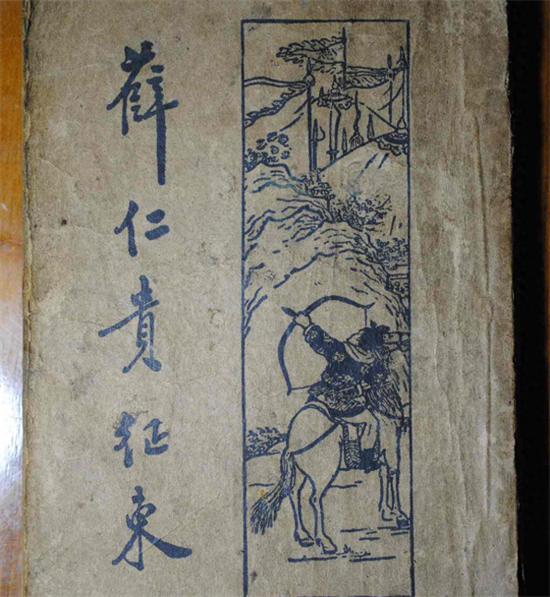 薛仁貴征東